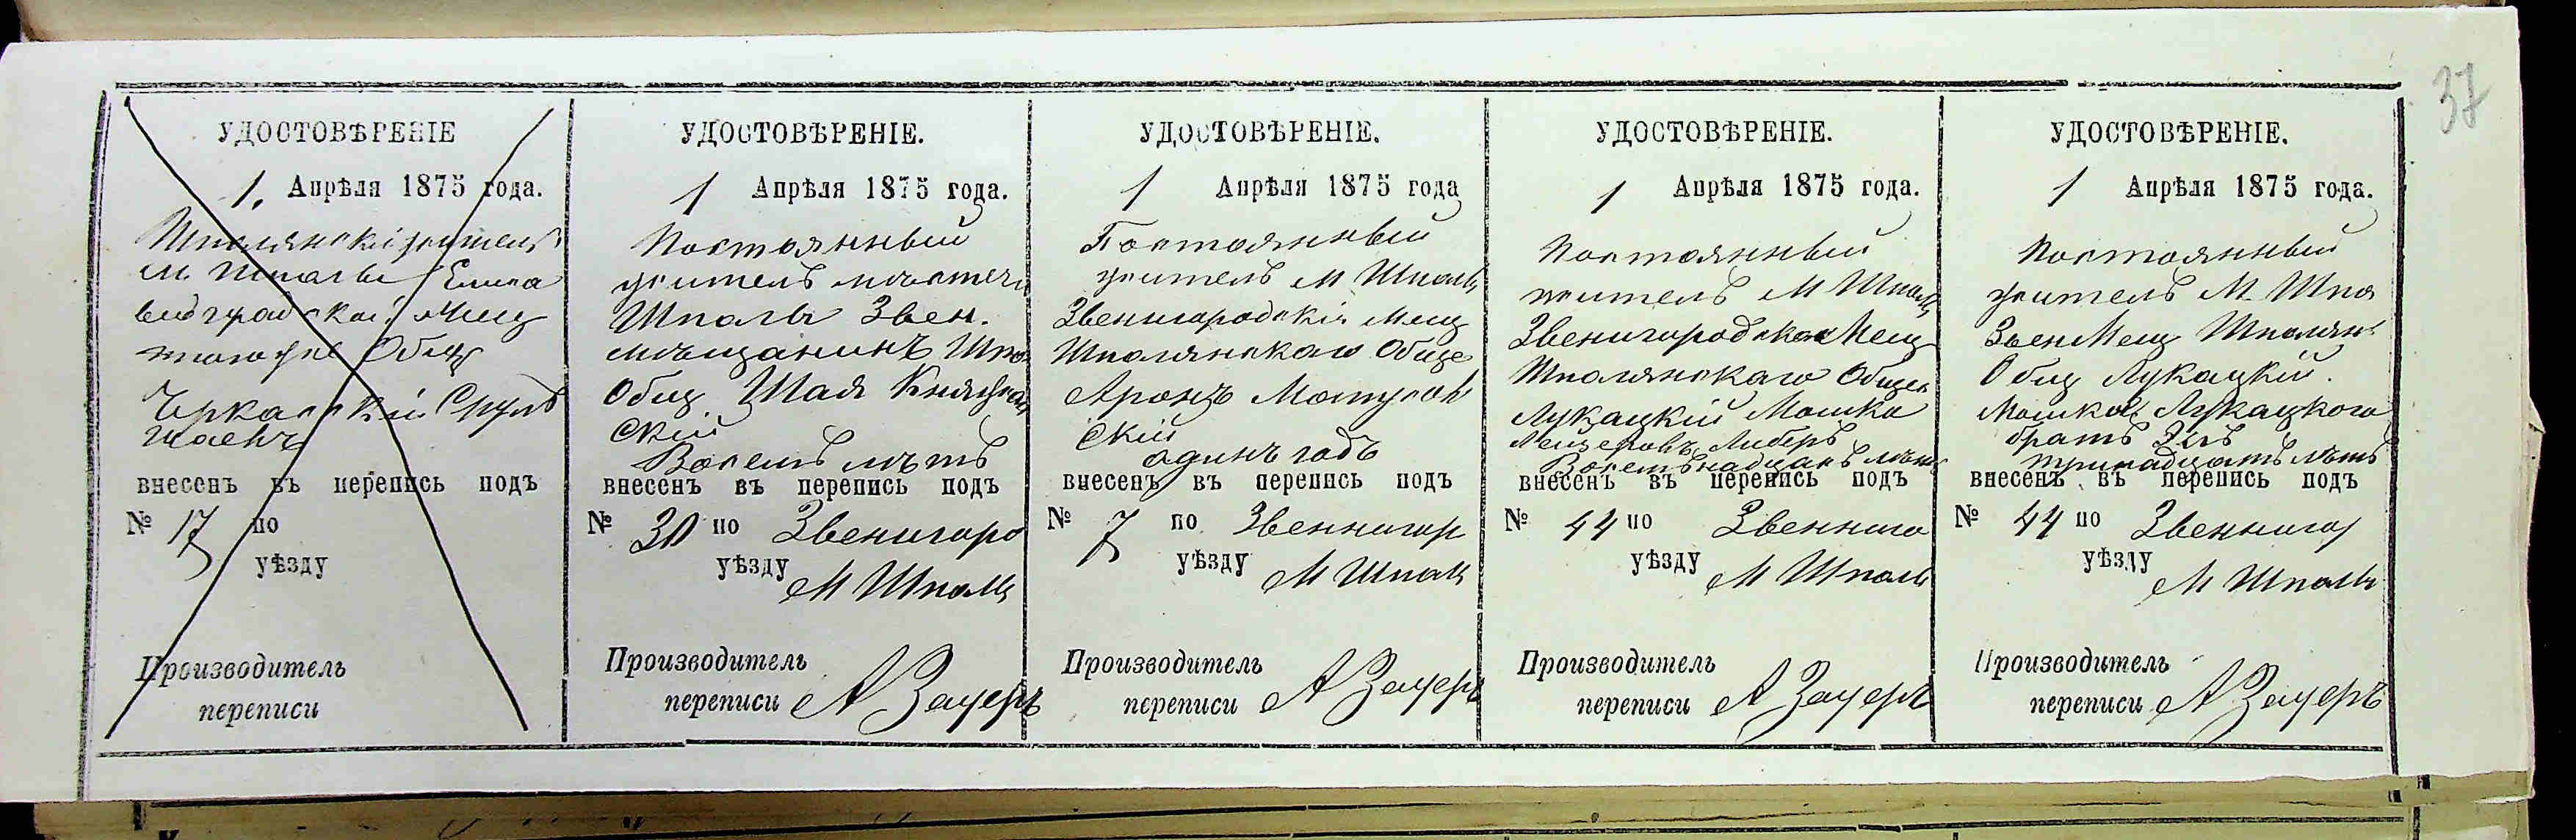 37
УДОСТОВѢРЕНІЕ
1. Апрѣля 1875 года.
Шполянскій житель
м. Шполы Елиса
ветградскій Мещ
того же Общ
Черкасскій Сруль
внесенъ въ перепись подъ
№ 17 по
уѣзду
Производитель
переписи
УДОСТОВѢРЕНІЕ.
1 Апрѣля 1875 года.
Постоянный
житель мѣстеч
Шполы Звен.
мѣщанинъ Шпо
Общ Шая Княжан
скій
Восемь лѣтъ
внесенъ въ перепись подъ
№ 30 по Звенигоро
уѣзду
М Шполы
Производитель
переписи А Зауеръ
УДОСТОВѢРЕНІЕ.
1 Апрѣля 1875 года
Постоянный
житель М Шполы
Звенигородскій Мещ
Шполянскаго Обще
Аронъ Мотусов
скій
одинъ годъ
внесенъ въ перепись подъ
№ 7 по Звенигор
уѣзду
М Шполы
Производитель
переписи А Зауеръ
УДОСТОВѢРЕНІЕ.
1 Апрѣля 1875 года.
Постоянный
житель М Шполы
Звенигородскій Мещ
Шполянскаго Общес
Лукацкій Мошко
Лейзеровъ Либеръ
Восемьнадцать лѣтъ
внесенъ въ перепись подъ
№ 44 по Звениго
уѣзду
М Шполы
Производитель
переписи А Зауеръ
УДОСТОВѢРЕНІЕ.
1 Апрѣля 1875 года.
Постоянный
житель М. Шпо
Звен Мещ Шполян
Общ Лукацкій.
Мошков Лукацкого
братъ
тринадцать лѣтъ
внесенъ въ перепись подъ
№ 44 по Звенигор
уѣзду
М Шполы
Производитель
переписи А Зауеръ